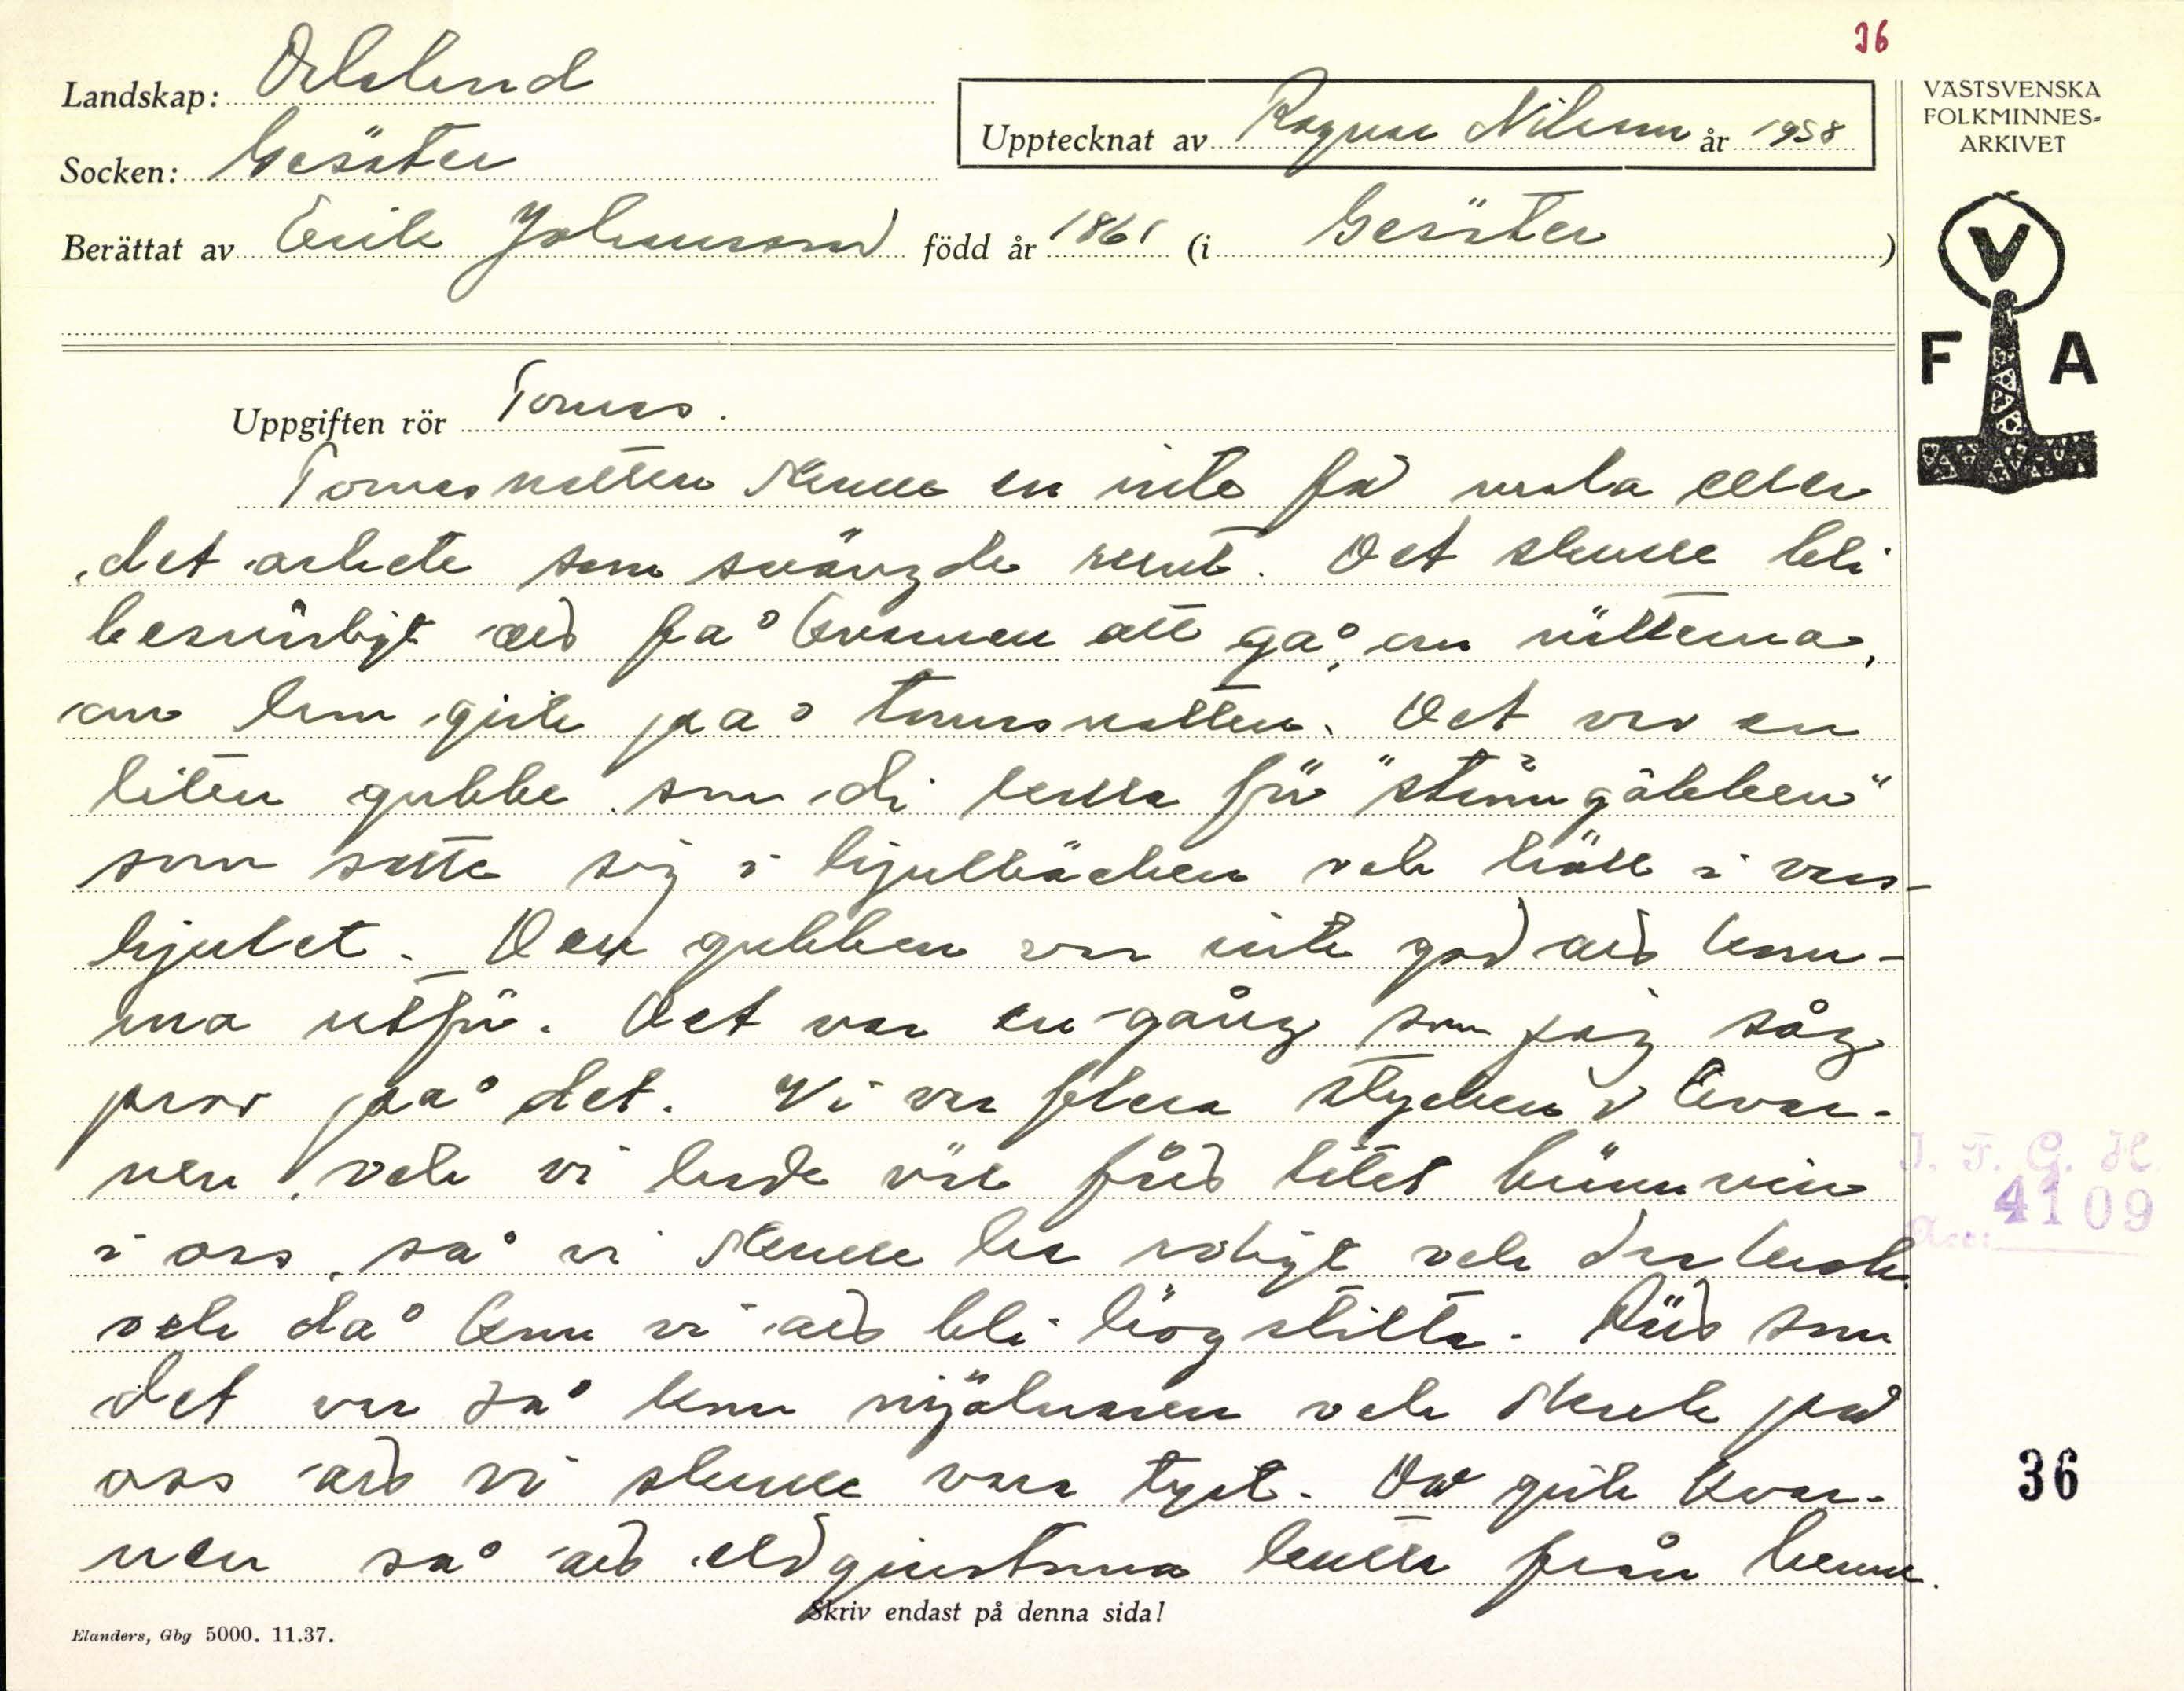 36
Landskap: Dalsland
Upptecknat av Ragnar Nilsson år 1938
VÄSTSVENSKA
FOLKMINNES=
ARKIVET
Socken: Gesäter
Berättat av Erik Johansson född år 1861 (i Gesäter)
V
F A
Uppgiften rör Tomas.
Tomasnatten skulle en inte få mala eller
det arbete som svängde runt. Det skulle bli
besvärligt äd få kvarnen att gå om nätterna,
om hun gick på tomasnatten. Det var en
liten gubbe som di kalla för
som satte sig i hjulbäcken och höll i vass-
hjulet. Den gubben var inte god äd kom-
ma utför. Det var en gång som jag såg
prov på det. Vi var flera stycken i kvar-
nen, och vi hade väl fåd litet brännvin
i oss, så vi skulle ha roligt och
och då kom vi äd bli högstilta. Räd som
det var så kom mjölnaren och skrek på
oss äd vi skulle vara tyst. Då gick kvar-
nen så äd eldgnistrna kasta från henne.
J. F. G. H.
Acc: 4109
36
Skriv endast på denna sida!
Elanders, Gbg 5000. 11.37.